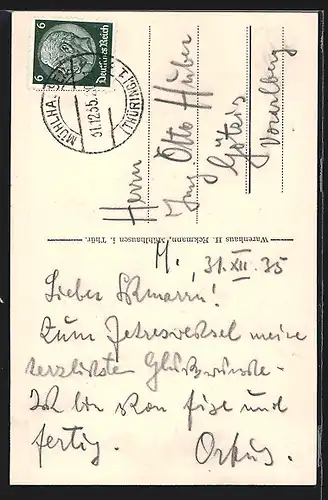 6 Deutsches Reich 6
MÜHLHAUSEN (THÜRING) 1
31.12.35.
Herrn
Ing. Otto Huber
Götzis
Vorarlberg
Warenhaus H. Eckmann, Mühlhausen i. Thür.
M., 31.XII.35
Lieber !
Zum Jahreswechsel meine
herzlichsten Glückwünsche.
Ich bin schon fix und
fertig. Orkus.